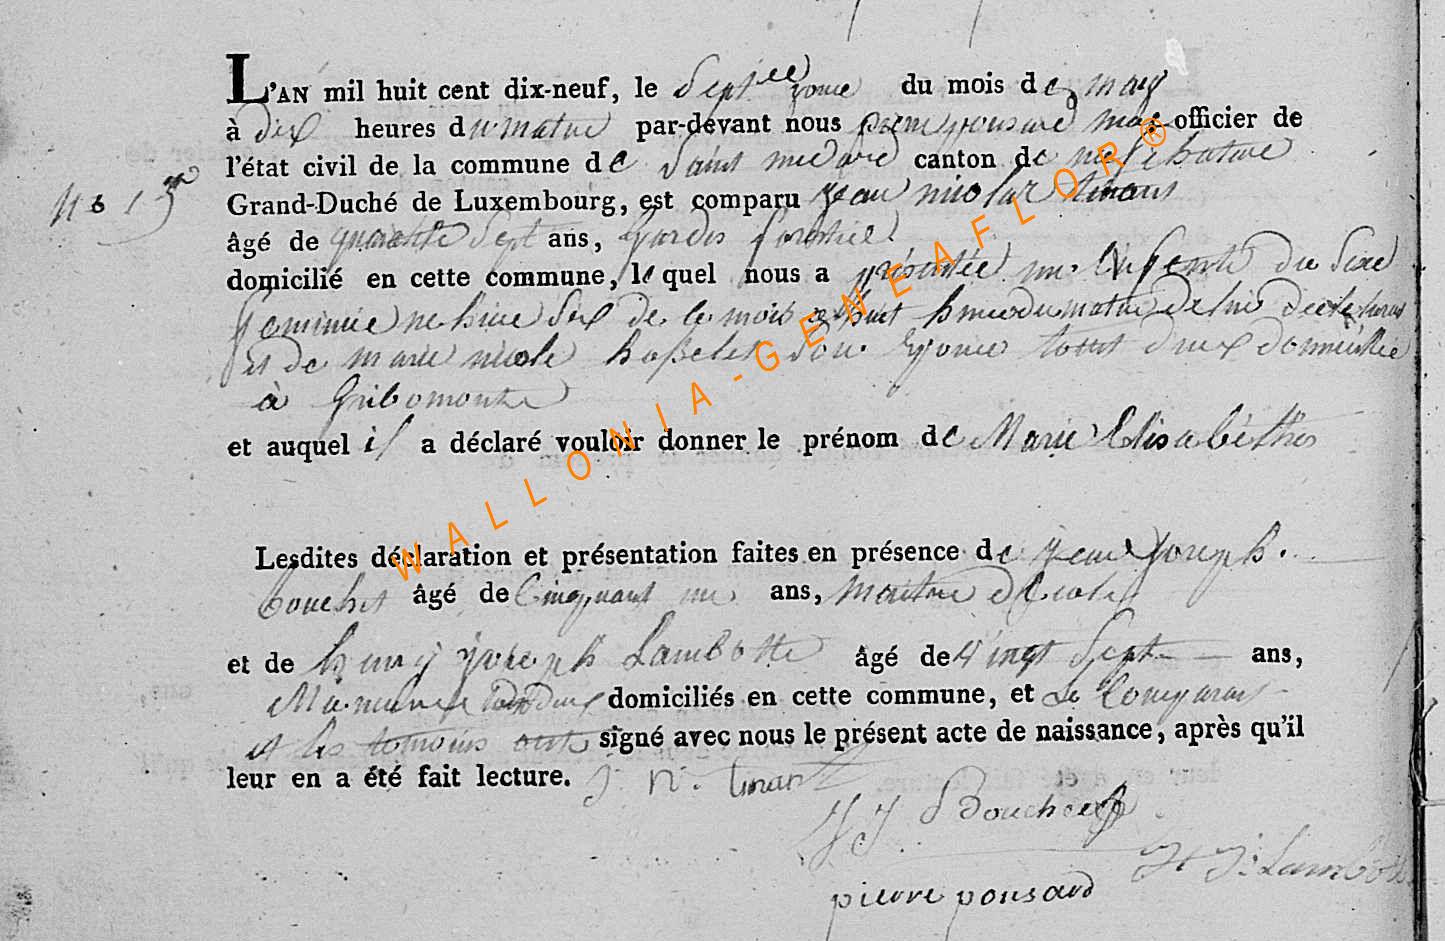 L'AN mil huit cent dix-neuf, le Sept du mois de may
à dix heures du matin par-devant nous pierre ponsard officier de
l'état civil de la commune de Saint medard canton de nefchateau
No 13
Grand-Duché de Luxembourg, est comparu jean nicolas tinant
âgé de quarante Sept ans, gardes forestiel
domicilié en cette commune, le quel nous a présentée un Enfant du Sexe
feminie ne hier Six de ce mois a huit heures du matin de lui declarant
et de marie nicole hosselet Son Epouse tous deux domiciliée
à Gribomont
et auquel il a déclaré vouloir donner le prénom de Marie Elisabethe
WALLONIA-GENEAFLOR®
Lesdites déclaration et présentation faites en présence de Jean Joseph
bouchet âgé de Cinquant un ans, maitre d'Ecole
et de henry joseph Lambotte âgé de vingt Sept ans,
domiciliés en cette commune, et le Comparant
et les temoins ont signé avec nous le présent acte de naissance, après qu'il
leur en a été fait lecture. J. N. tinant
J J Bouchet
H J. Lambotte
pierre ponsard